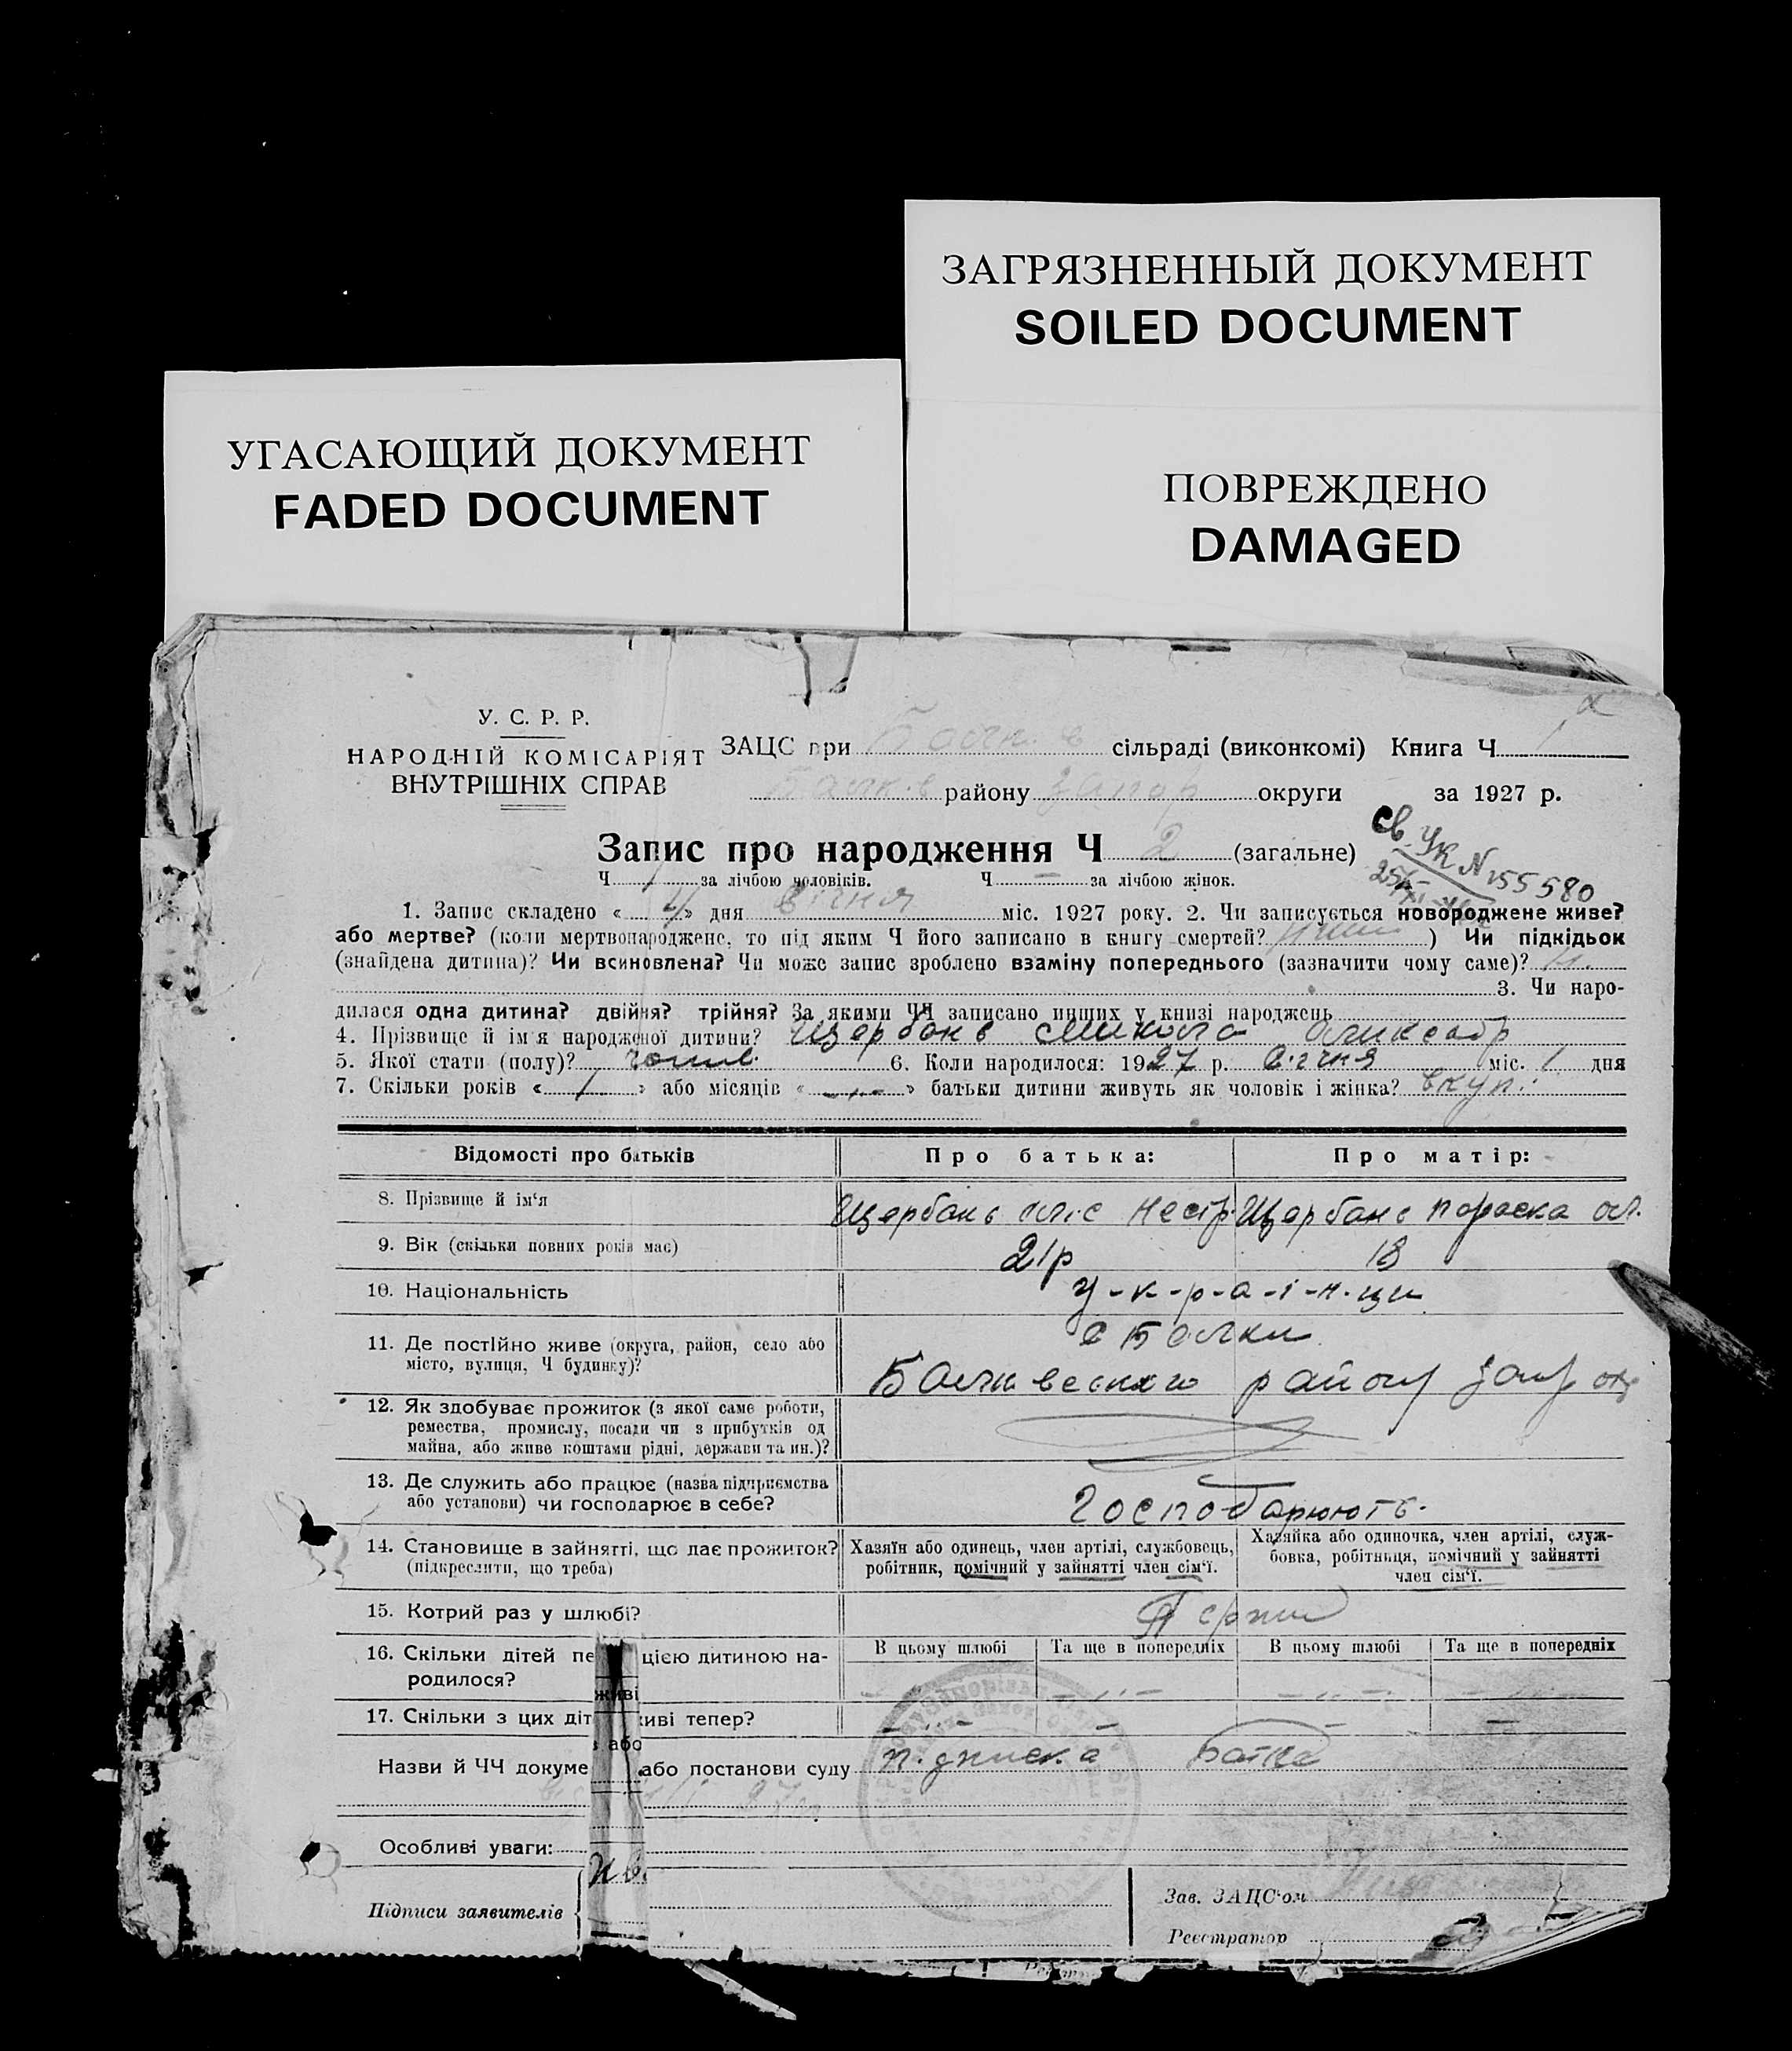 ЗАГРЯЗНЕННЫЙ ДОКУМЕНТ
SOILED DOCUMENT
УГАСАЮЩИЙ ДОКУМЕНТ
FADED DOCUMENT
ПОВРЕЖДЕНО
DAMAGED
У. С. Р. Р.
НАРОДНІЙ КОМІСАРІЯТ
ВНУТРІШНІХ СПРАВ
ЗАЦС при сільраді (виконкомі) Книга Ч 1
району Запор округи за 1927 р.
Запис про народження Ч 2 (загальне)
св. УК N 155580
Ч 1 за лічбою чоловіків. Ч — за лічбою жінок.
1. Запис складено « 4 » дня січня міс. 1927 року. 2. Чи записується новороджене живе?
або мертве? (коли мертвонароджене, то під яким Ч його записано в книгу смертей? ) Чи підкідьок
(знайдена дитина)? Чи всиновлена? Чи може запис зроблено взаміну попереднього (зазначити чому саме)?
3. Чи наро-
дилася одна дитина? двійня? трійня? За якими ЧЧ записано инших у книзі народжень
4. Прізвище й ім'я народженої дитини? Щербань Микола Олександр
5. Якої стати (полу)? чолов. 6. Коли народилося: 1927 р. січня міс. 1 дня
7. Скільки років « 1 » або місяців « -„- » батьки дитини живуть як чоловік і жінка? вкупі
Відомості про батьків
Про батька:
Про матір:
8. Прізвище й ім'я
Щербань Нестр. Щербань Параска Ол.
9. Вік (скільки повних років має)
21р 18
10. Національність
У-к-р-а-ї-н-ци
11. Де постійно живе (округа, район, село або
місто, вулиця, Ч будинку)?
с Балки
району Запр окр
12. Як здобуває прожиток (з якої саме роботи,
ремества, промислу, посади чи з прибутків од
майна, або живе коштами рідні, держави та ин.)?
13. Де служить або працює (назва підприємства
або установи) чи господарює в себе?
Господарюють.
14. Становище в зайнятті, що дає прожиток?
(підкреслити, що треба)
Хазяїн або одинець, член артілі, службовець,
робітник, помічний у зайнятті член сім'ї.
Хазяйка або одиночка, член артілі, служ-
бовка, робітниця, помічний у зайнятті
член сім'ї.
15. Котрий раз у шлюбі?
Перший
16. Скільки дітей пе цією дитиною на-
родилося?
В цьому шлюбі
Та ще в попередніх
В цьому шлюбі
Та ще в попередніх
живі
17. Скільки з цих діт живі тепер?
або
Назви й ЧЧ докуме або постанови суду
підписка батька
Особливі уваги:
Підписи заявителів
Зав. ЗАЦС'ом
Реєстратор